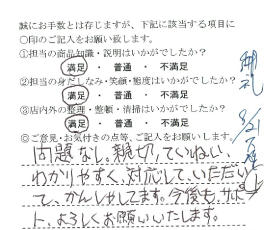 誠にお手数とは存じますが、下記に該当する項目に
○印のご記入をお願い致します。
①担当の商品知識・説明はいかがでしたか?
満足 ・ 普通 ・ 不満足
②担当の身だしなみ・笑顔・態度はいかがでしたか?
満足 ・ 普通 ・ 不満足
③店内外の整理・整頓・清掃はいかがでしたか?
満足 ・ 普通 ・ 不満足
◎ご意見・お気付きの点等、ご記入をお願いします。
問題なし。親切、ていねい、
わかりやすく、対応して、いただい
て、かんしゃしてます。今後も、サポー
ト、よろしくお願いいたします。
御礼
8/21